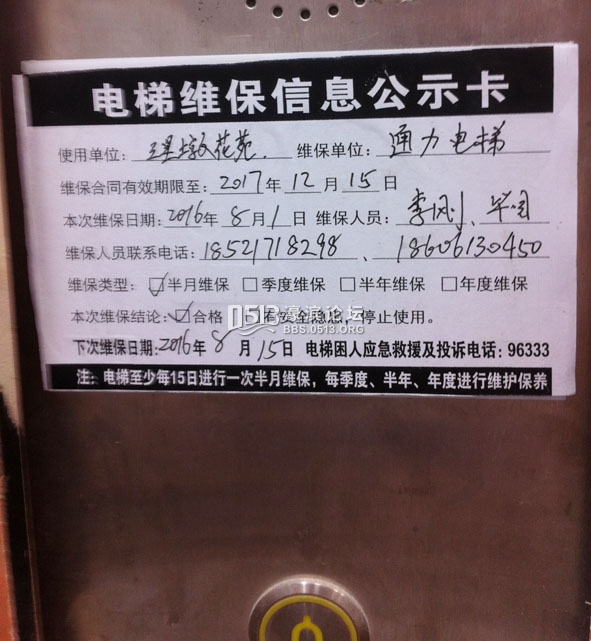 电梯维保信息公示卡
使用单位: 花苑. 维保单位: 通力电梯
维保合同有效期限至: 2017年12月15日
本次维保日期: 2016年8月1日 维保人员: 李
维保人员联系电话: 18521718298、18606130450
维保类型: ☑半月维保 □季度维保 □半年维保 □年度维保
本次维保结论: ☑合格 有安全隐患,停止使用。
0513 濠滨论坛
BBS.0513.ORG
下次维保日期: 2016年8月15日 电梯困人应急救援及投诉电话: 96333
注: 电梯至少每15日进行一次半月维保，每季度、半年、年度进行维护保养